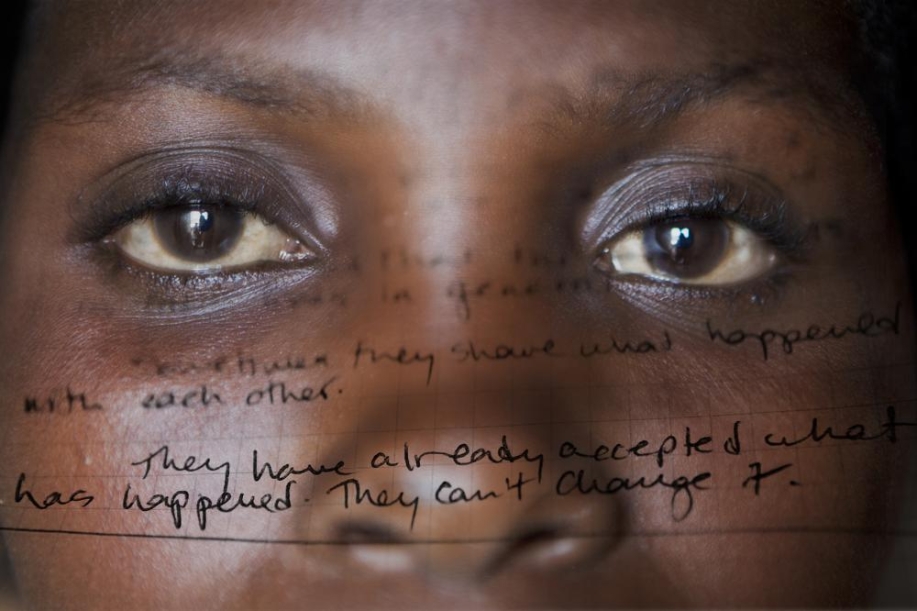 that the
in general
Sometimes they share what happened
with each other.
They have already accepted what
has happened. They can't change it.